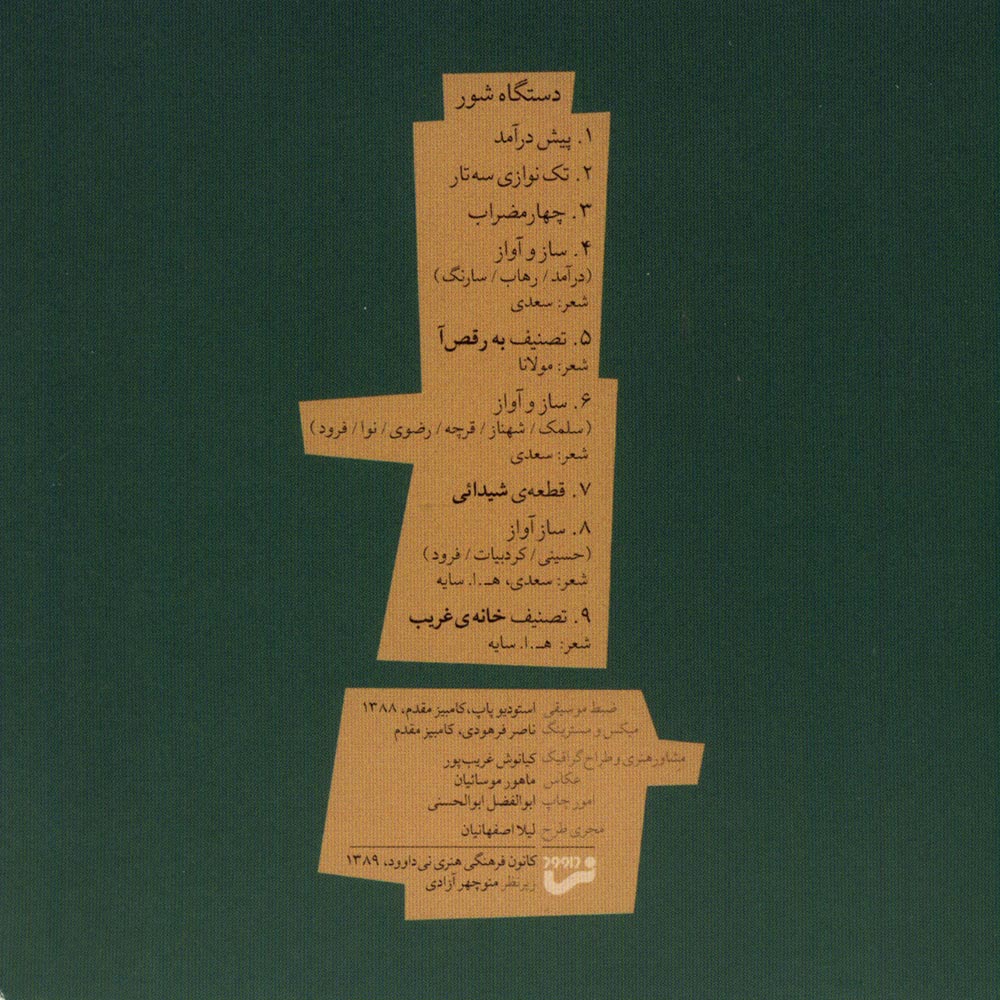 دستگاه شور
۱. پیش درآمد
۲. تک نوازی سه‌تار
۳. چهارمضراب
۴. ساز و آواز
(درآمد / رهاب / سارنگ)
شعر: سعدی
۵. تصنیف به رقص‌آ
شعر: مولانا
۶. ساز و آواز
(سلمک / شهناز / قرچه / رضوی / نوا / فرود)
شعر: سعدی
۷. قطعه‌ی شیدائی
۸. ساز آواز
(حسینی / کردبیات / فرود)
شعر: سعدی، هـ.ا. سایه
۹. تصنیف خانه‌ی غریب
شعر: هـ.ا. سایه
ضبط موسیقی استودیو پاپ، کامبیز مقدم، ۱۳۸۸
میکس و مسترینگ ناصر فرهودی، کامبیز مقدم
مشاور هنری و طراح گرافیک کیانوش غریب‌پور
عکاس ماهور موسائیان
امور چاپ ابوالفضل ابوالحسنی
مجری طرح لیلا اصفهانیان
نی داوود کانون فرهنگی هنری نی‌داوود، ۱۳۸۹
زیرنظر منوچهر آزادی